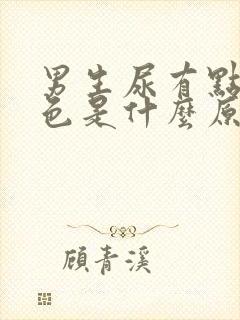 男生尿有點
色是什麼原
顧青溪